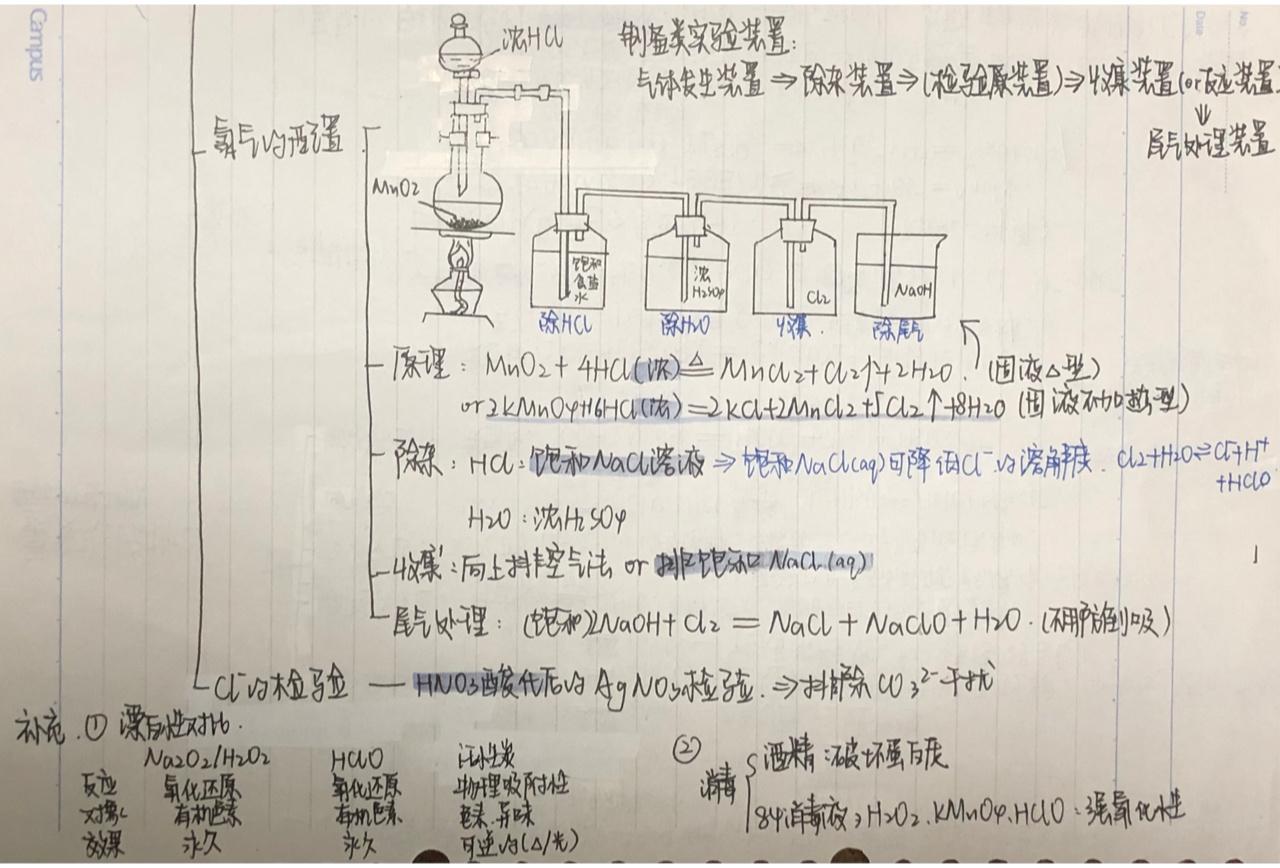 Campus
No
Date
浓HCl
制备类实验装置:
气体发生装置⇒除杂装置⇒(检验原装置)⇒收集装置(or反应装置)
⇓
尾气处理装置
氯气的配置
MnO2
饱和食盐水
浓H2SO4
Cl2
NaOH
除HCl 除H2O 收集. 除尾气
原理: MnO2+4HCl(浓)≜MnCl2+Cl2↑+2H2O. (固液△型)
or 2KMnO4+16HCl(浓)=2KCl+2MnCl2+5Cl2↑+8H2O (固液不加热型)
除杂: HCl:饱和NaCl溶液⇒饱和NaCl(aq)可降低Cl⁻的溶解度. Cl2+H2O⇌Cl⁻+H⁺
+HClO
H2O:浓H2SO4
收集:向上排空气法 or 排饱和NaCl(aq)
尾气处理: (饱和)2NaOH+Cl2=NaCl+NaClO+H2O.(不用防倒吸)
Cl⁻的检验 — HNO3酸化后的AgNO3检验.⇒排除CO3²⁻干扰
补充.①漂白性对比.
Na2O2/H2O2 HClO 活性炭
反应 氧化还原 氧化还原 物理吸附性
对象 有机色素 有机色素 色素.异味
效果 永久 永久 可逆的(△/光)
② 消毒
酒精:破坏蛋白质
84消毒液,H2O2.KMnO4.HClO:强氧化性